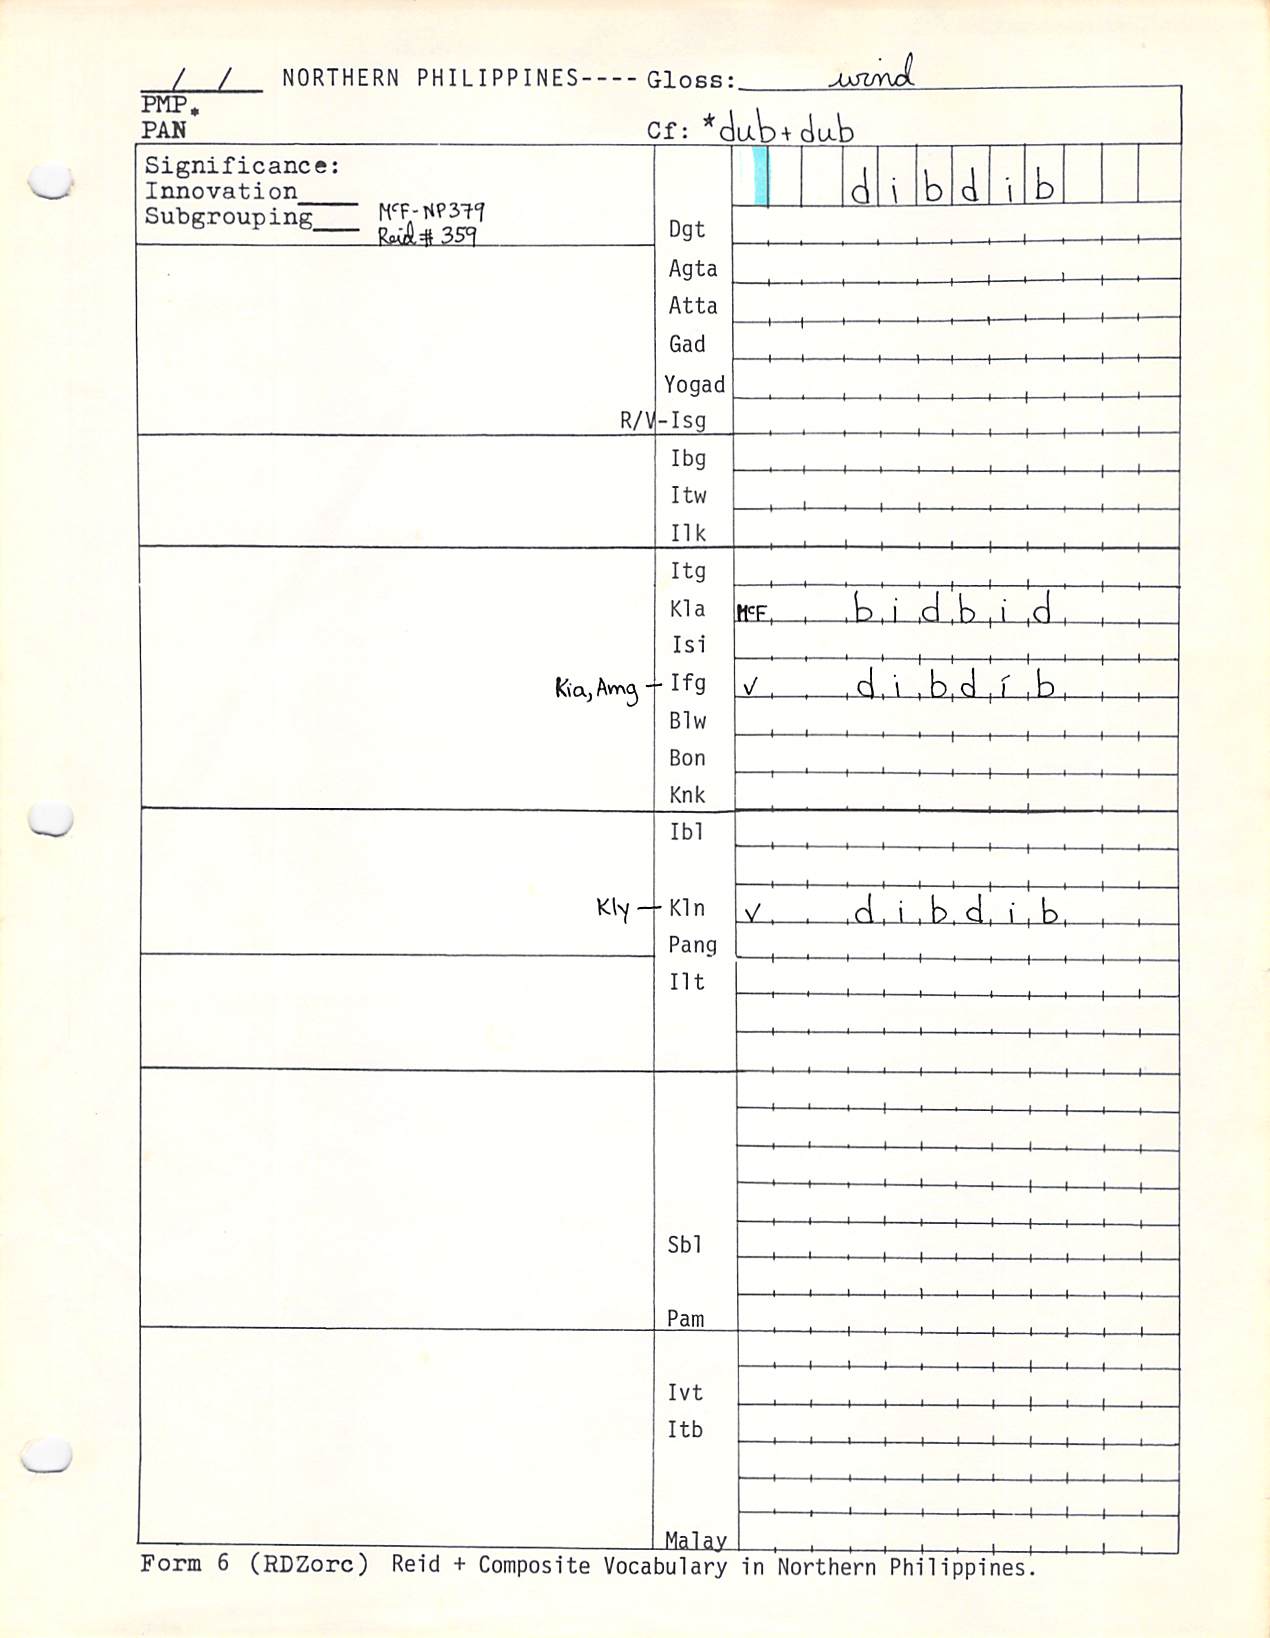 / / NORTHERN PHILIPPINES---- Gloss: wind
PMP.
PAN Cf: *dub+dub
Significance:
Innovation____
Subgrouping___ McF-NP379
Reid # 359
d i b d i b
Dgt
Agta
Atta
Gad
Yogad
R/V-Isg
Ibg
Itw
Ilk
Itg
Kla McF b i d b i d
Isi
Kia, Amg — Ifg ✓ d i b d í b
Blw
Bon
Knk
Ibl
Kly — Kln ✓ d i b d i b
Pang
Ilt
Sbl
Pam
Ivt
Itb
Malay
Form 6 (RDZorc) Reid + Composite Vocabulary in Northern Philippines.